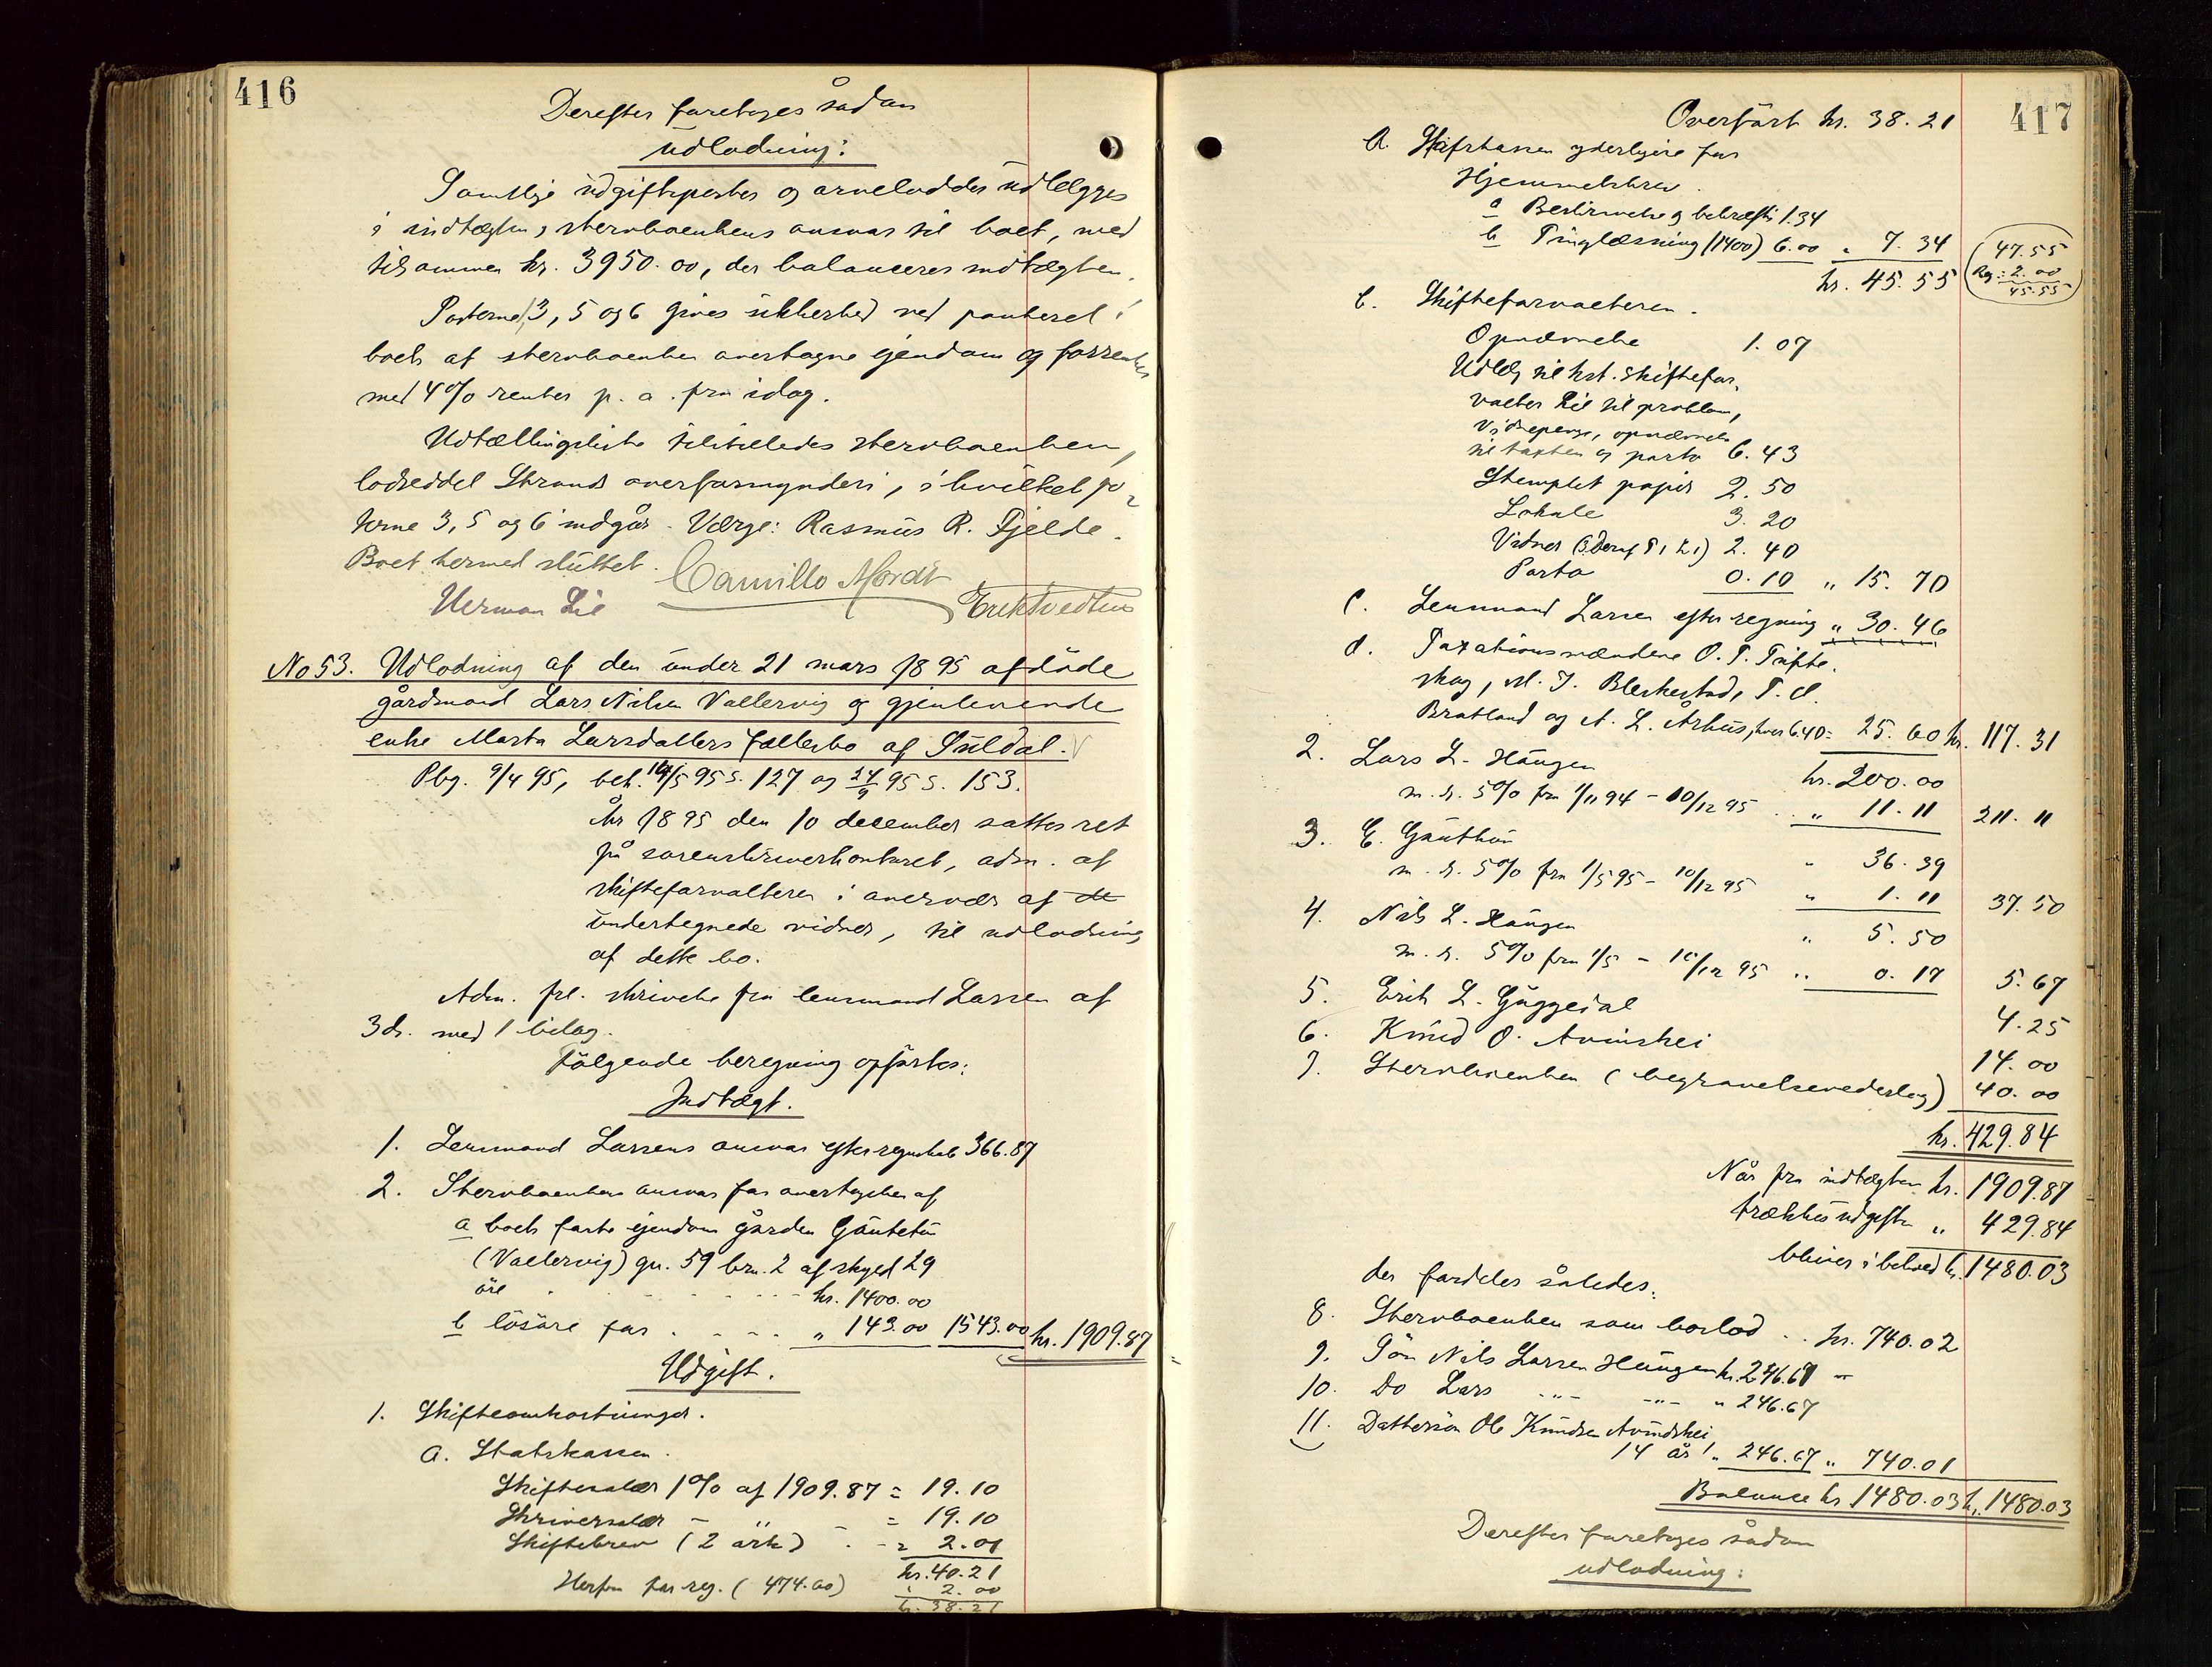 416
Derefter foretoges sådan
udlodning:
Samtlige udgiftsposter og arvelodder udlægges
i indtægten, stervboenkens ansvar til boet, med
tilsammen kr. 3950.00, der balanceres indtægten.
Posterne 3, 5 og 6 gives sikkerhed ved panteret i
boets af stervboenken overtagne eiendom og forrentes
med 4% renter p. a. fra idag.
Udtællingsliste tilstilledes stervboenken,
lodseddel Strands overformynderi, i hvilket po-
sterne 3, 5 og 6 indgår. Værge: Rasmus R. Fjelde.
Boet hermed sluttet.
Camillo Mordt
Herman Lie Erik Tvedten
No 53. Udlodning af den under 21 mars 1895 afdöde
gårdmand Lars Nilsen Vallervig og gjenlevende
enke Marta Larsdatters fællesbo af Suldal.
Pbg. 9/4 95, beh. 14/5 95 s. 127 og 24/9 95 s. 153.
År 1895 den 10 december sattes ret
på sorenskriverkontoret, adm. af
skifteforvalteren i overvær af de
undertegnede vidner, til udlodning
af dette bo.
Adm. frl. skrivelse fra lensmand Larsen af
3 ds. med 1 bilag.
Fölgende beregning opförtes:
Indtægt.
1. Lensmand Larsens ansvar efter regnskab 366.87
2. Stervboenkens ansvar for overtagelse af
a boets faste eiendom gården Gauteton
(Vallervig) gn. 59 brn. 2 af skyld 29
öre . . . . . . kr. 1400.00
b lösöre for . . . . „ 143.00 1543.00 kr. 1909.87
Udgift.
1. Skifteomkostninger.
a. Statskassen.
Skiftesalær 1% af 1909.87 = 19.10
Skriversalær - „ - = 19.10
Skiftebrev (2 ark) . - = 2.01
kr. 40.21
Herfra for reg. (474.00) „ 2.00
kr. 38.21
417
Overfört kr. 38.21
a. Skifskassen yderligere for
Hjemmelsbrev.
a Beskrivelse og bekræft. 1.34
b Tinglæsning (1400) 6.00 „ 7.34
kr. 45.55
47.55
Reg: 2.00
45.55
b. Skifteforvalteren.
Opnævnelse 1.07
Udlæg til kst. skiftefor-
valter Lie til problam,
vidnepenge, opnævnelse
til taxten og porto 6.43
Stemplet papir 2.50
Lokale 3.20
Vidner 2.40
Porto 0.10 „ 15.70
c. Lensmand Larsen efter regning „ 30.46
d. Taxationsmændene O. T. Tufte-
skog, M. J. Bleskestad, T. O.
Bratland og A. L. Århus, hver 6.40 = 25.60 kr. 117.31
2. Lars L. Haugen kr. 200.00
m. r. 5% fra 1/11 94 - 10/12 95 . . „ 11.11 211.11
3. E. Gauthun „ 36.39
m. r. 5% fra 1/5 95 - 10/12 95 „ 1.11 37.50
4. Nils L. Haugen „ 5.50
m. r. 5% fra 1/5 - 10/12 95 „ 0.17 5.67
5. Erik L. Guggedal 4.25
6. Knud O. Avinskei 14.00
7. Stervboenken (begravelsevederlag) 40.00
kr. 429.84
Når fra indtægten kr. 1909.87
trækkes udgiften „ 429.84
bliver i behold kr. 1480.03
der fordeles således:
8. Stervboenken som boslod . . kr. 740.02
9. Sön Nils Larsen Haugen kr. 246.67
10. Do Lars -„- -„- „ 246.67
11. Dattersön Ole Knudsen Avindskei
14 år „ 246.67 „ 740.01
Balance kr. 1480.03 kr. 1480.03
Derefter foretoges sådan
udlodning: